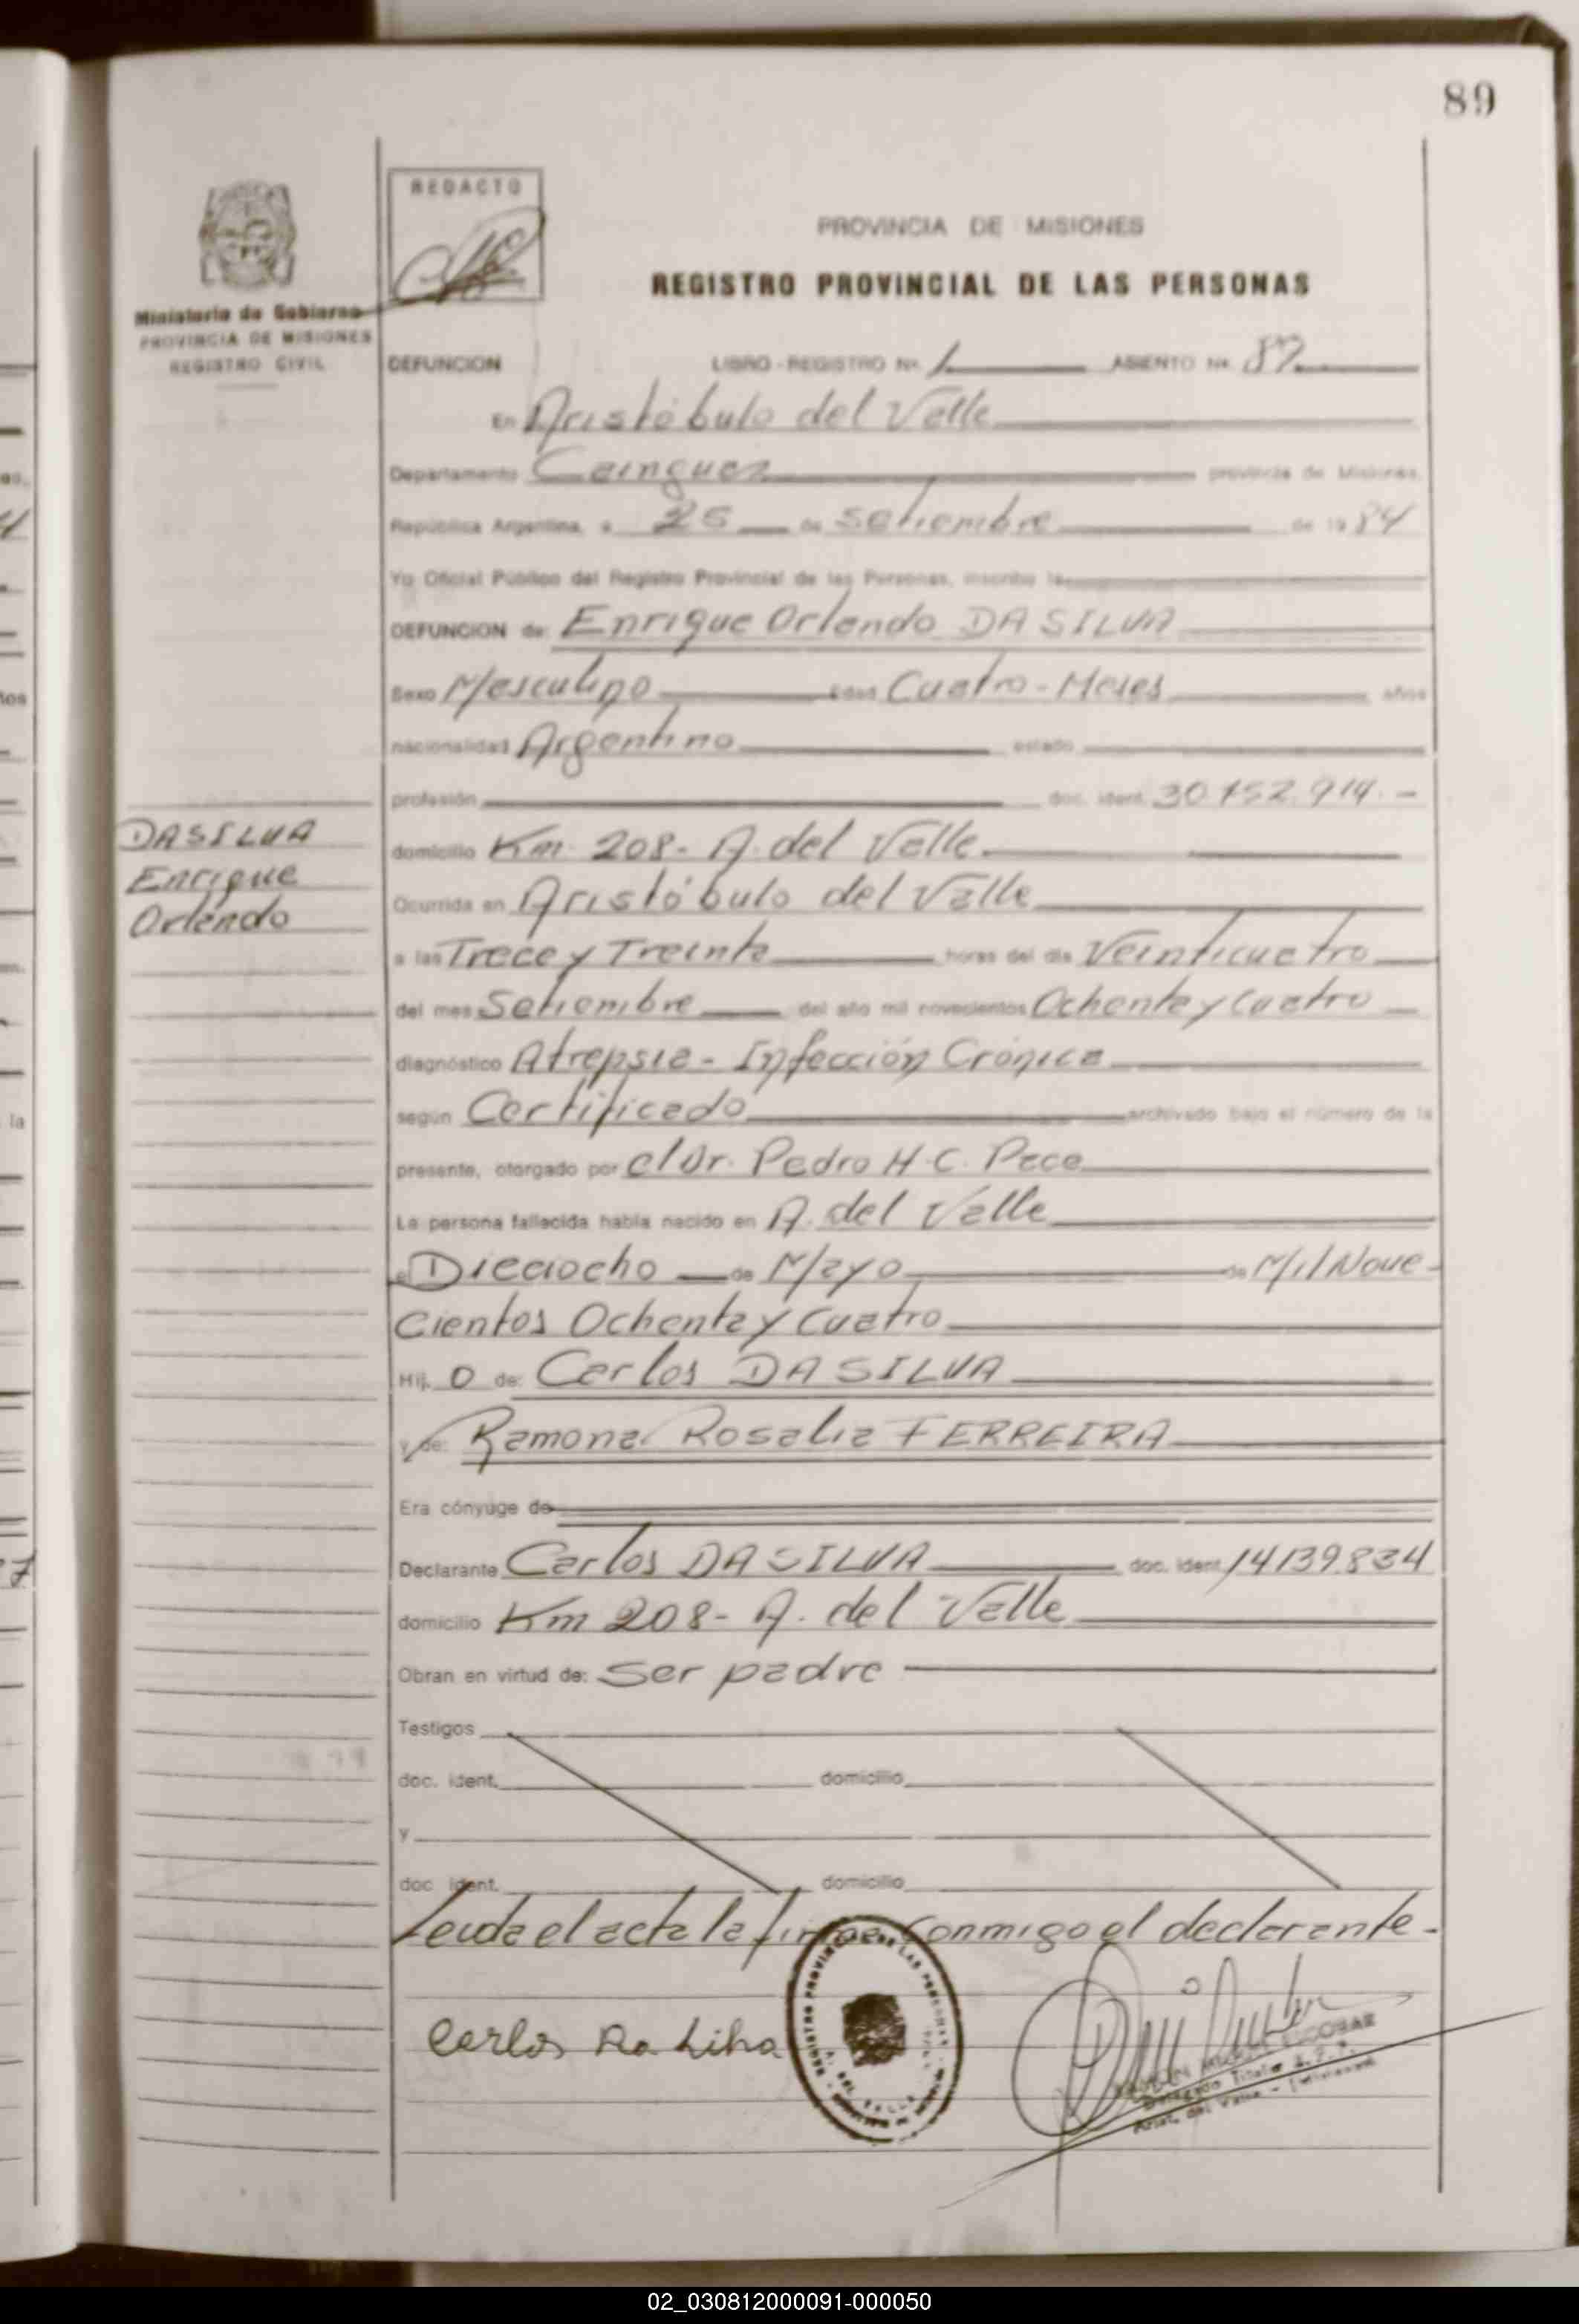 89
REDACTO
PROVINCIA DE MISIONES
REGISTRO PROVINCIAL DE LAS PERSONAS
Ministerio de Gobierno
PROVINCIA DE MISIONES
REGISTRO CIVIL
DEFUNCION LIBRO - REGISTRO Nº. 1 ASIENTO Nº. 87
En Aristóbulo del Valle
Departamento Cainguas provincia de Misiones,
República Argentina, a 25 de Setiembre de 19 84
Yo Oficial Público del Registro Provincial de las Personas, inscribo la
DEFUNCION de: Enrique Orlando DA SILVA
Sexo Masculino Edad Cuatro - Meses años
nacionalidad Argentino estado
profesión doc. ident. 30.752.914.-
DASILVA
Enrique
Orlando
domicilio Km. 208- A. del Valle.
Ocurrida en Aristóbulo del Valle
a las Trece y Treinta horas del día Veinticuatro
del mes Setiembre del año mil novecientos Ochenta y Cuatro
diagnóstico Atrepsia - Infección Crónica
según Certificado archivado bajo el número de la
presente, otorgado por el Dr. Pedro H. C. Pace
La persona fallecida había nacido en A. del Valle
el Dieciocho de Mayo de Mil Nove-
cientos Ochenta y Cuatro
Hij o de: Carlos DA SILVA
y de: Ramona Rosalia FERREIRA
Era cónyuge de
Declarante Carlos DA SILVA doc. ident. 14139.834
domicilio Km 208- A. del Valle
Obran en virtud de: Ser padre
Testigos
doc. ident. domicilio
y
doc. ident. domicilio
Leida el acta la firma conmigo el declarante.
Carlos
REGISTRO PROVINCIAL DE LAS PERSONAS
A. DEL VALLE
ESCOBAR
Delegado Titular
Arist. del Valle - (Misiones)
02_030812000091-000050